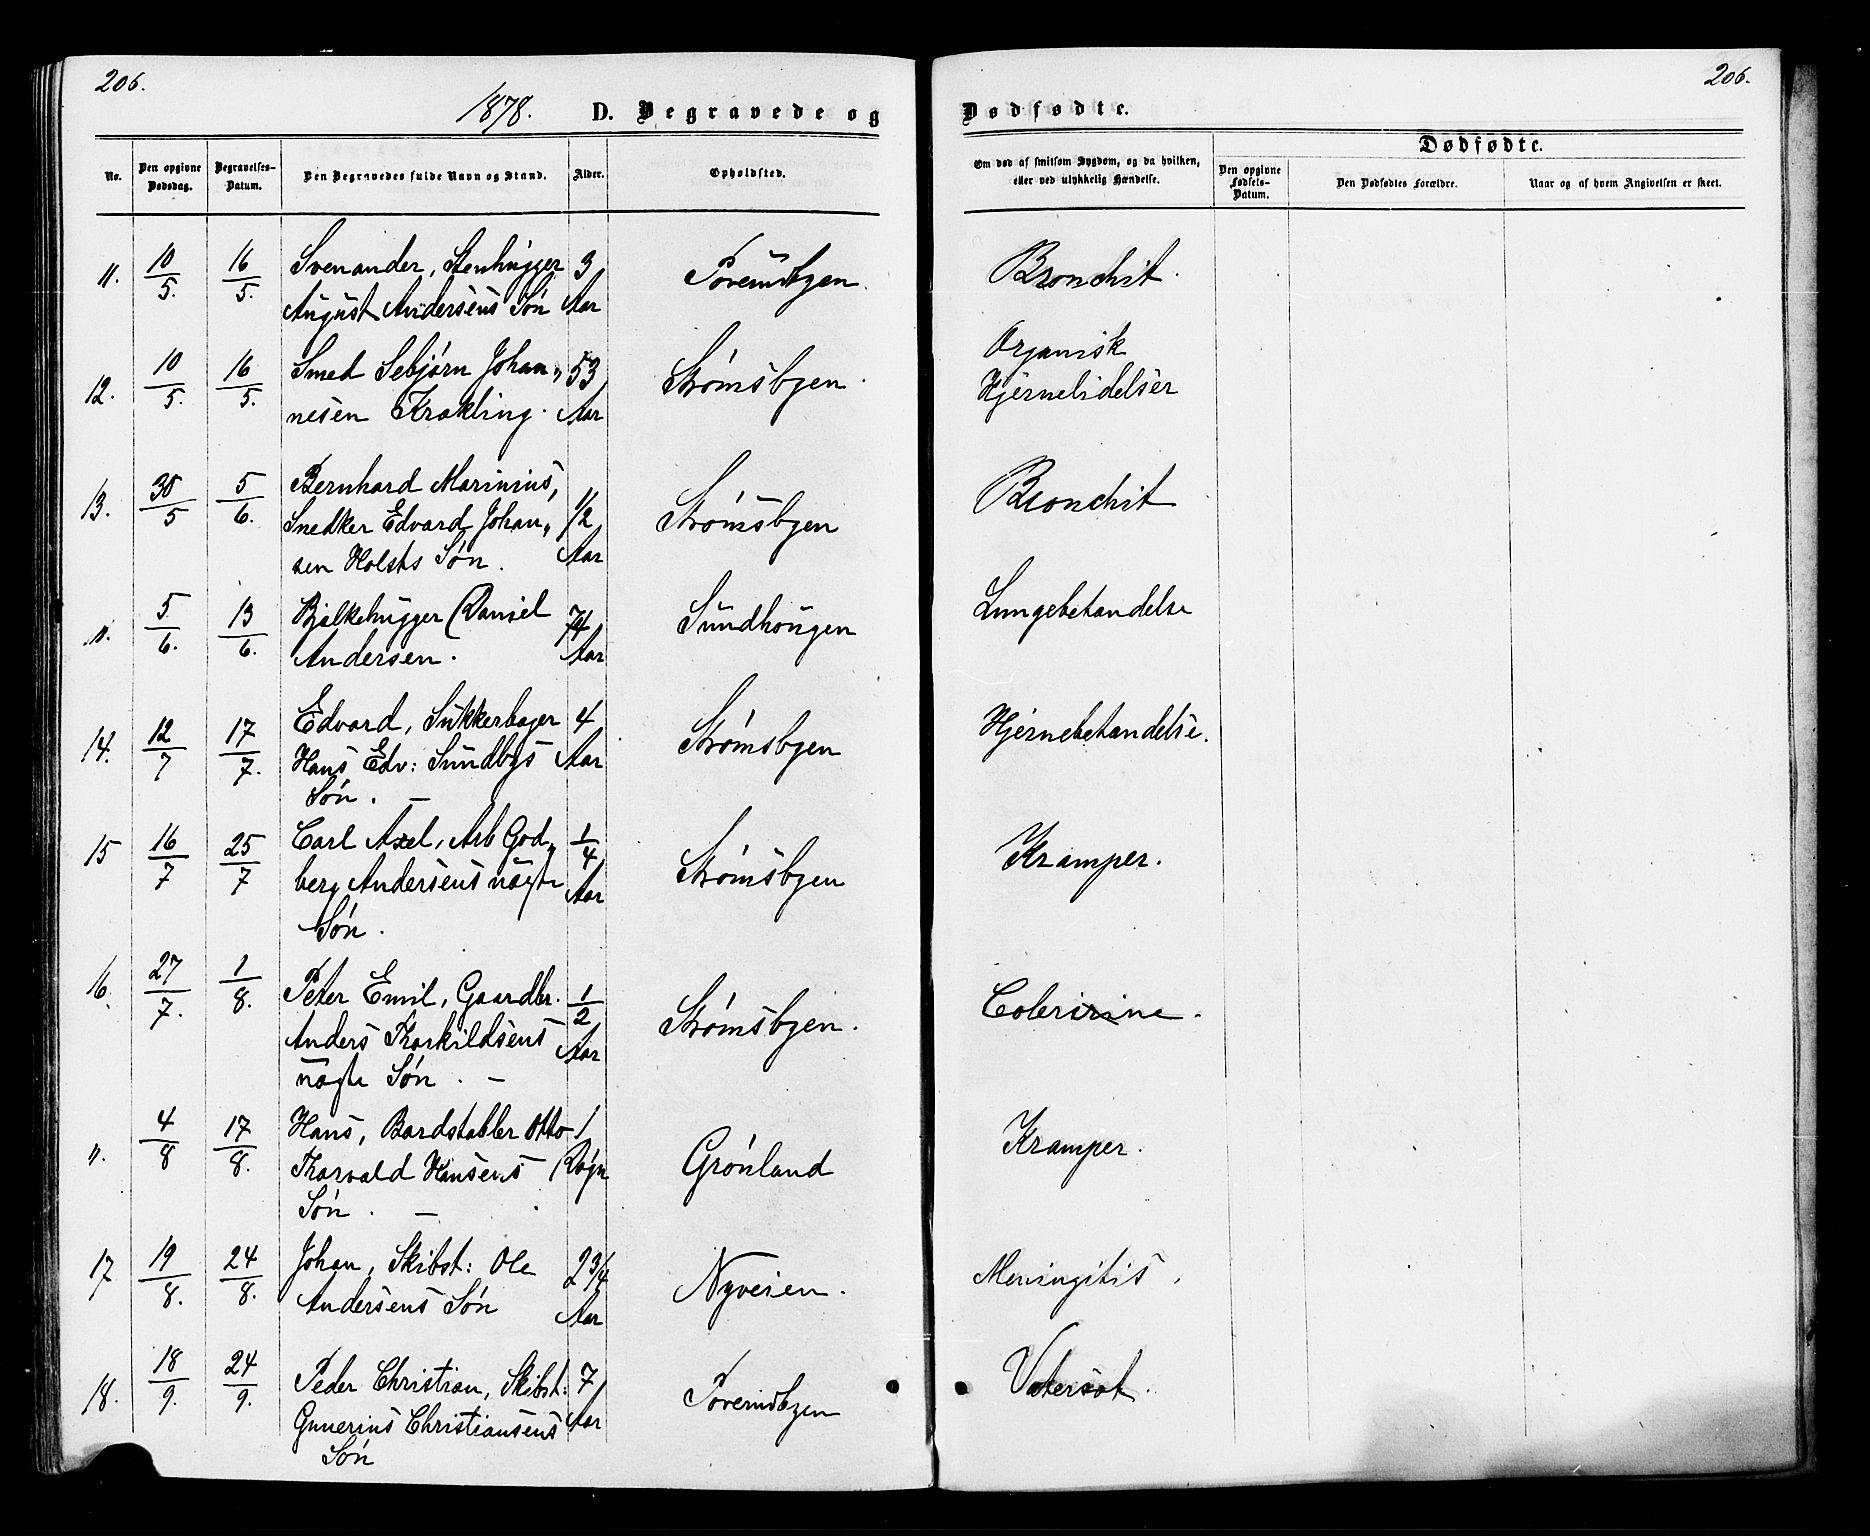 206.
206.
1878. D. Begravede og Dødfødte.
No.
Den opgivne Dødsdag.
Begravelses-Datum.
Den Begravedes fulde Navn og Stand.
Alder.
Opholdsted.
Om død af smitsom Sygdom, og da hvilken,
eller ved ulykkelig Hændelse.
Dødfødte.
Den opgivne Fødsels-Datum.
Den Dødfødtes Forældre.
Naar og af hvem Angivelsen er skeet.
11. 10/5. 16/5. Svenander, Stenhugger 3
August Andersens Søn Aar
Bronchit.
12. 10/5. 16/5. Smed Sebjørn Johan„ 53 Strømsbyen. Organisk
nesen Krokling. Aar Hjernelidelser
13. 30/5 5/6. Bernhard Marinius, 1/2
Snedker Edvard Johan„ Aar Strømsbyen Bronchit
sen Holsts Søn.
". 5/6. 13/6. Bjelkehugger Daniel 74 Sundhougen Lungebetændelse
Andersen. Aar
14. 12/7 17/7. Edvard, Sukkerbager 4 Strømsbyen Hjernebetændelse.
Hans Edv: Sundbys Aar
Søn. —
15 16/7 25/7 Carl Axel, Arb God„ 1/4 Strømsbyen Kramper.
berg Andersens uægte Aar
Søn.
16. 27/7. 1/8. Peter Emil, Gaardbr. 1/2 Strømsbyen.
Anders Thorkildsens Aar
uægte Søn. —
". 4/8 17/8. Hans, Bordstabler Otto 1 Grønland Kramper.
Thorvald Hansens Døgn
Søn. —
17 19/8. 24/8. Johan, Skibst: Ole 2 3/4 Nyveien. Meningitis.
Andersens Søn Aar
18. 18/9. 24/9. Peder Christian, Skibst: 7
Gunerius Christiansens Aar
Søn
Vatersot.